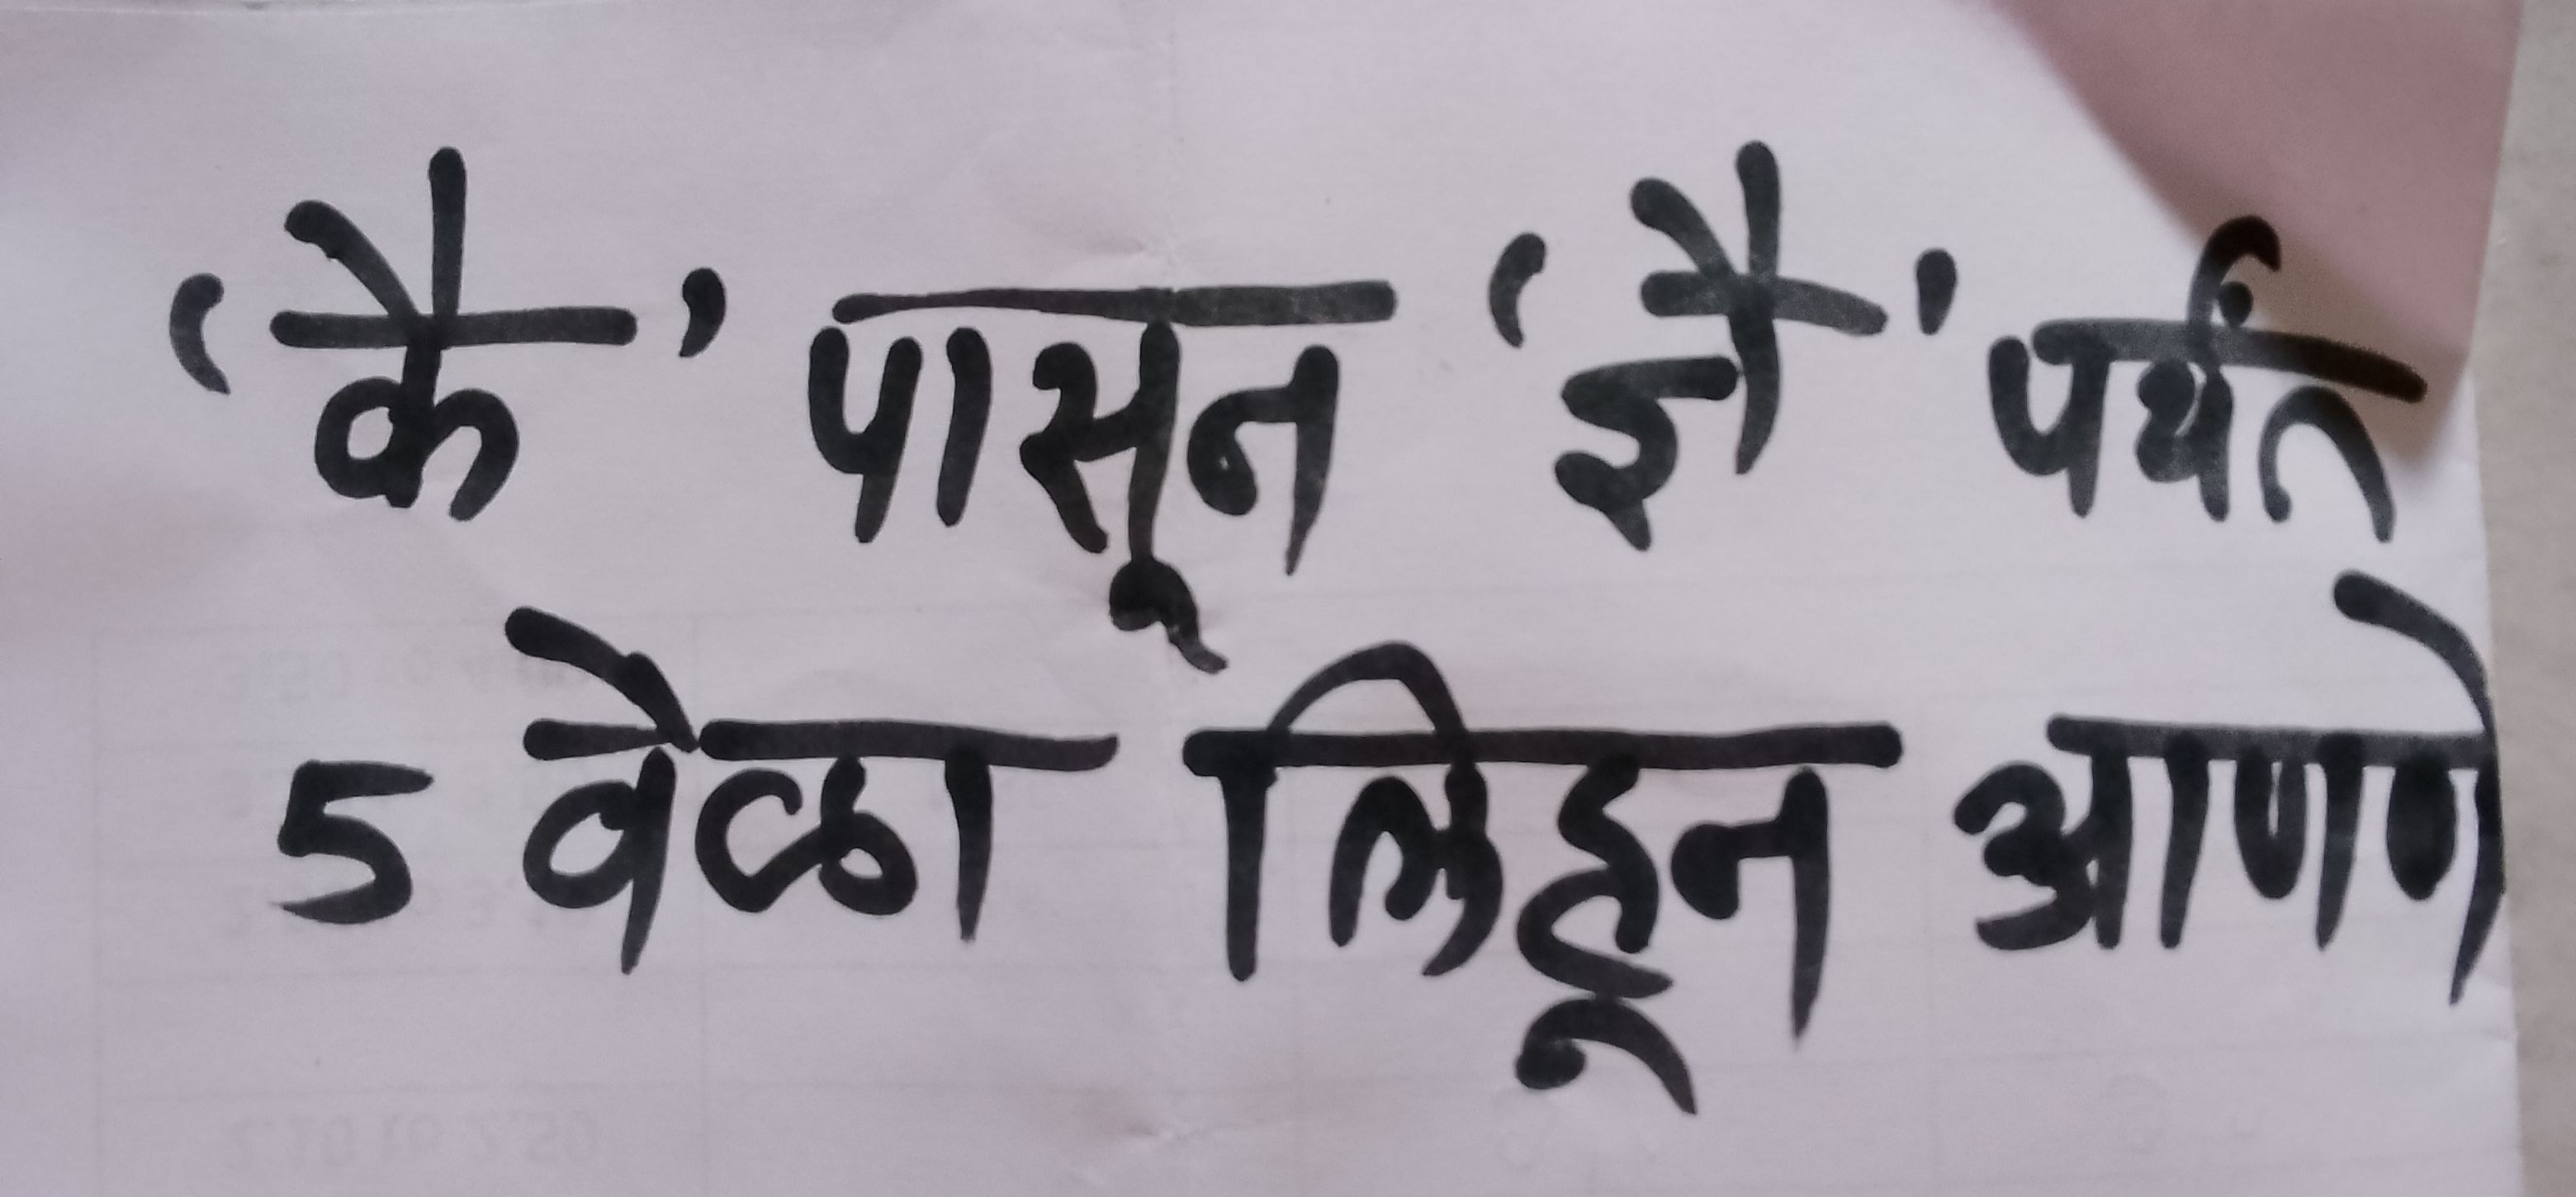 'कै' पासून 'ज्ञै' पर्यंत
5 वेळा लिहून आणणे